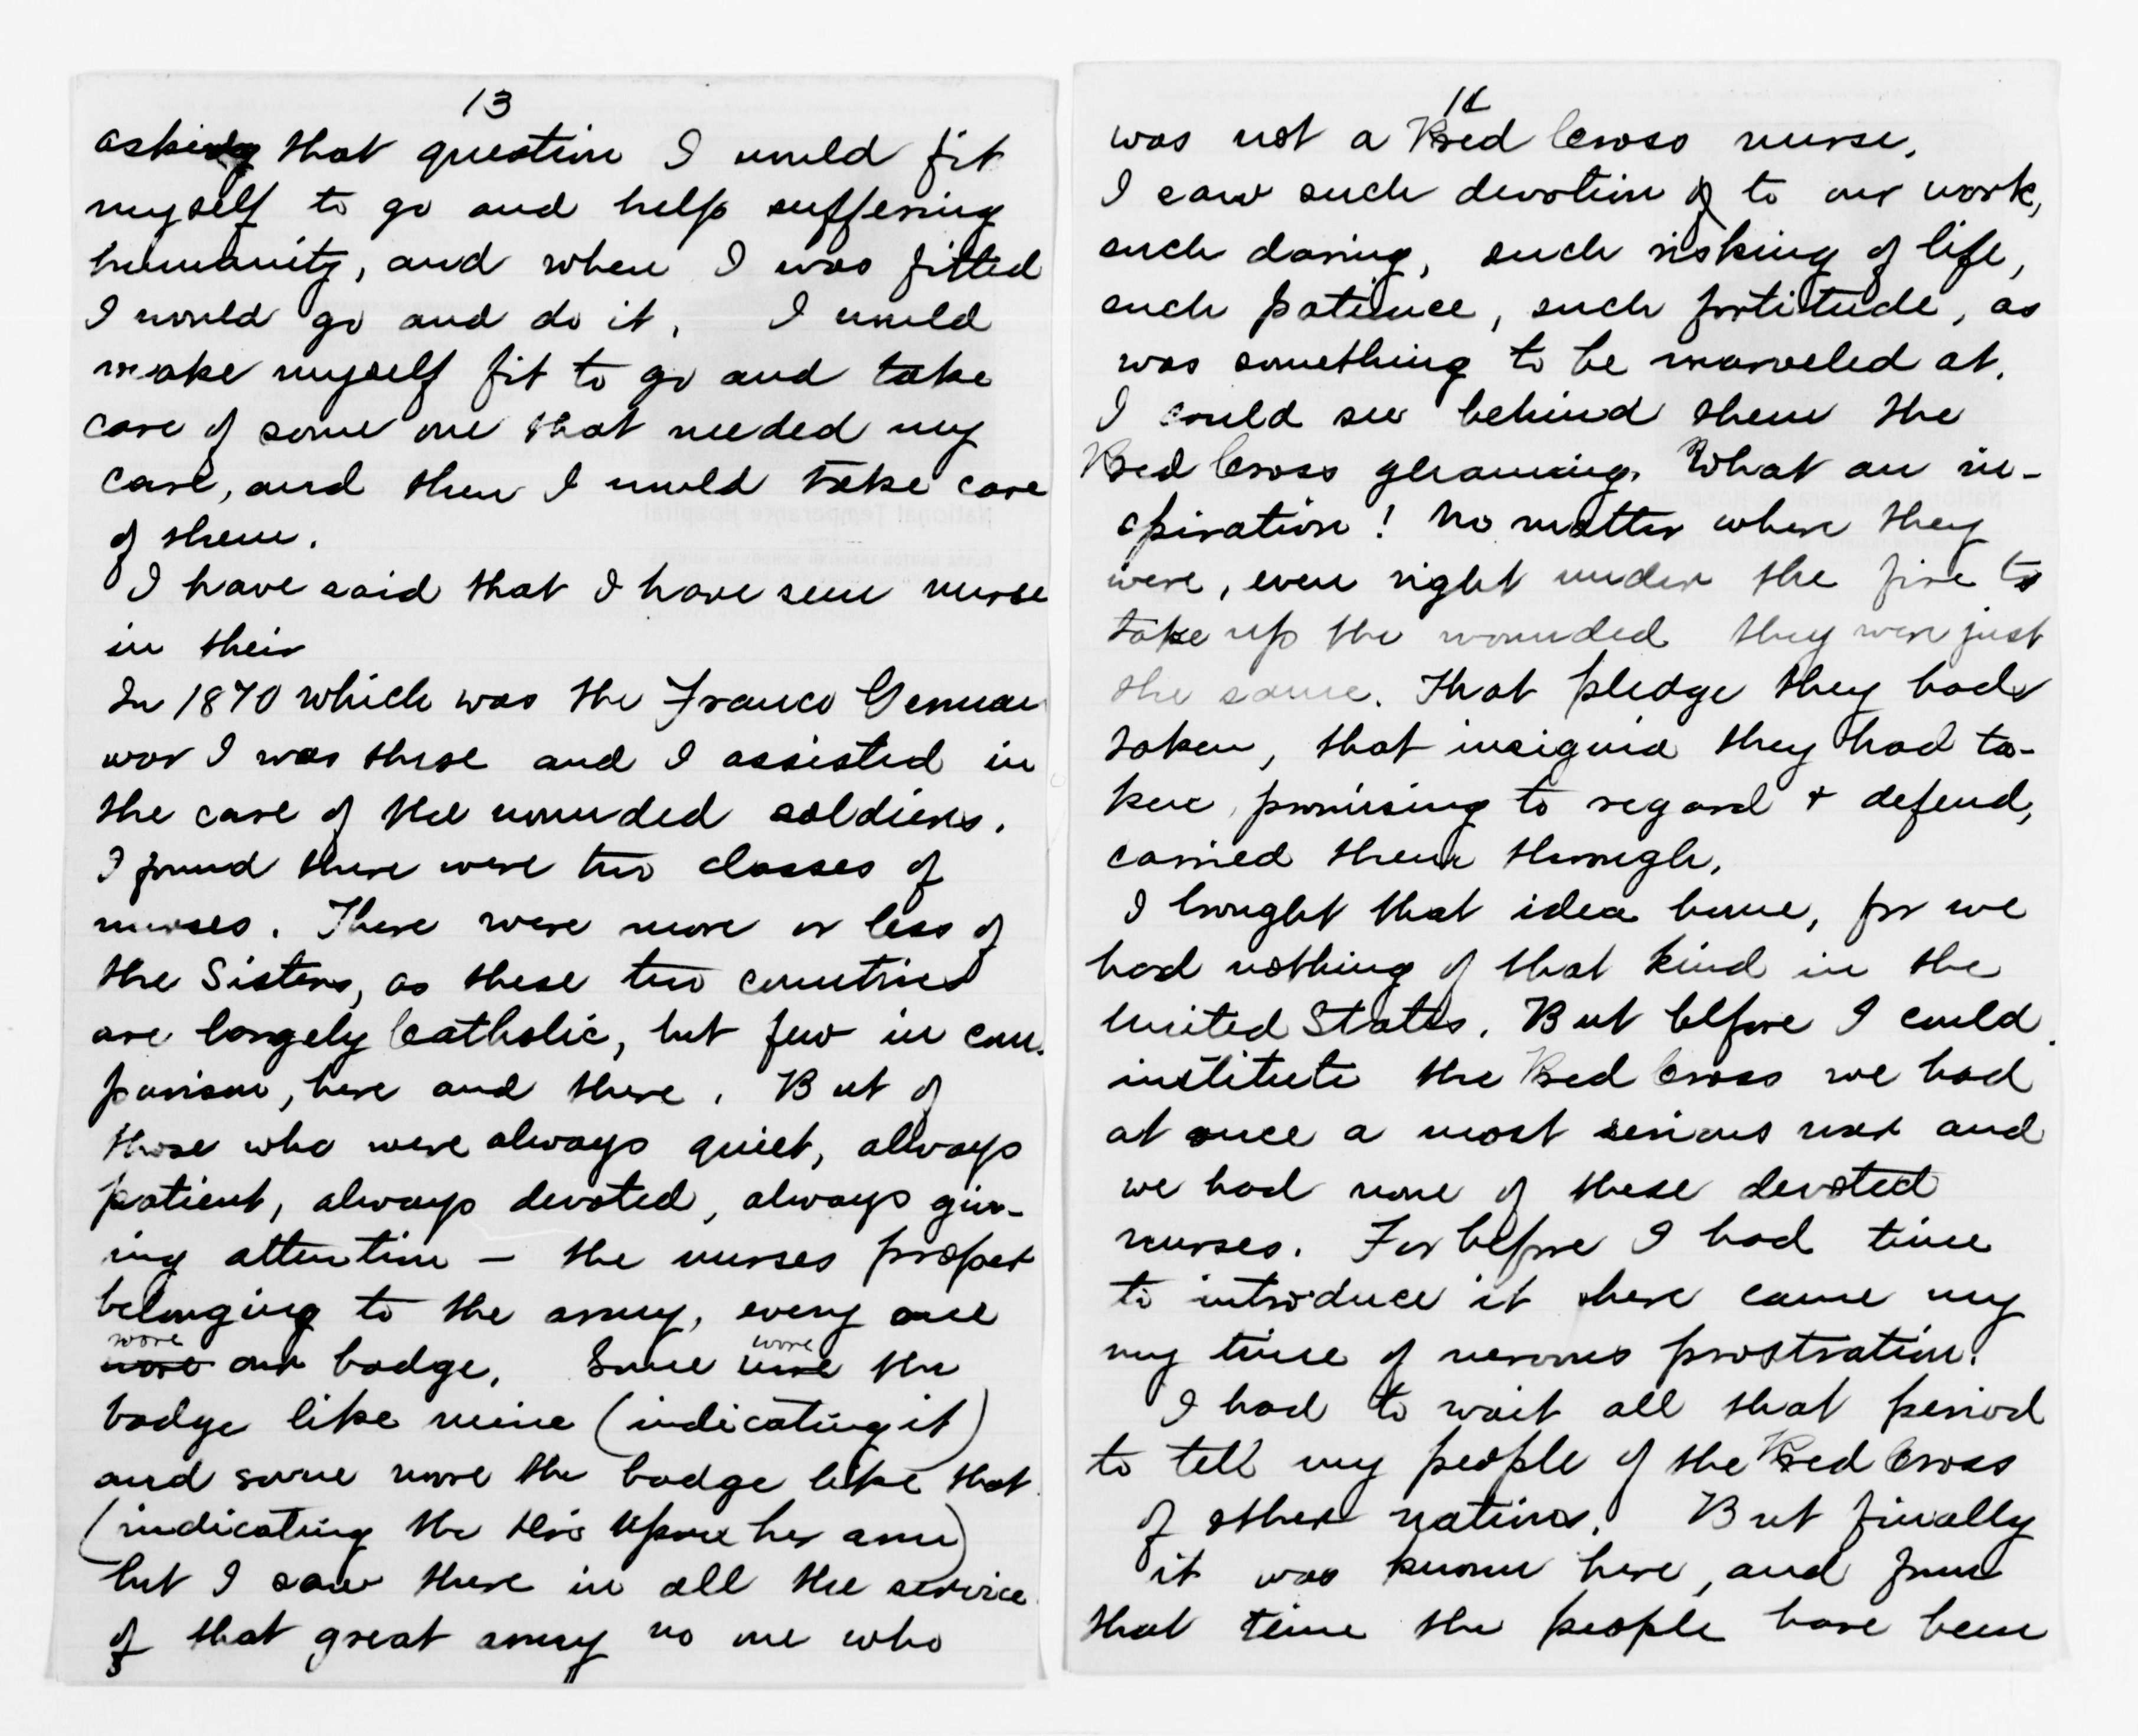 13
asking that question I would fit
myself to go and help suffering
humanity, and when I was fitted
I would go and do it. I would
make myself fit to go and take
care of some one that needed my
care, and then I would take care
of them.
I have said that I have seen nurse
in their
In 1870 which was the Franco German
war I was there and I assisted in
the care of the wounded soldiers.
I found there were two classes of
nurses. There were more or less of
the Sisters, as these two countries
are largely Catholic, but few in com-
parison, here and there. But of
those who were always quiet, always
patient, always devoted, always giv-
ing attention — the nurses proper
belonging to the army, every one
wore
wore our badge. Some wore the
badge like mine (indicating it)
and some wore the badge like that
(indicating the upon her arm)
but I saw there in all the service
of that great army no one who
14
was not a Red Cross nurse.
I saw such devotion of to our work,
such daring, such risking of life,
such patience, such fortitude, as
was something to be marveled at.
I could see behind them the
Red Cross gleaming. What an in-
spiration! No matter where they
were, even right under the fire to
take up the wounded they were just
the same. That pledge they had
taken, that insignia they had ta-
ken, promising to regard + defend,
carried them through.
I brought that idea home, for we
had nothing of that kind in the
United States. But before I could
institute the Red Cross we had
at once a most serious need and
we had none of these devoted
nurses. For before I had time
to introduce it there came my
my time of nervous prostration.
I had to wait all that period
to tell my people of the Red Cross
of other nations. But finally
it was known here, and from
that time the people have been